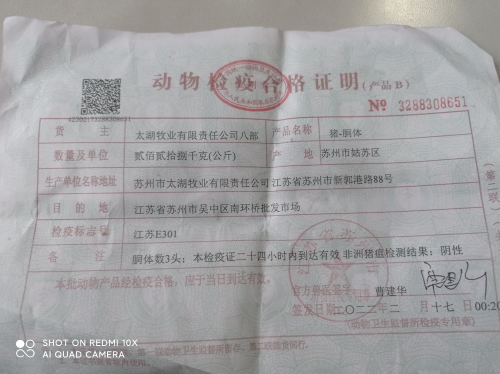 动物检疫合格证明(产品B)
№ 3288308651
货 主 太湖牧业有限责任公司八部 产品名称 猪-胴体
数量及单位 贰佰贰拾捌千克(公斤) 产 地 苏州市姑苏区
生产单位名称地址 苏州市太湖牧业有限责任公司江苏省苏州市新郭港路88号
目 的 地 江苏省苏州市吴中区南环桥批发市场
检疫标志号 江苏E301
备 注 胴体数3头; 本检疫证二十四小时内到达有效 非洲猪瘟检测结果: 阴性
本批动物产品经检疫合格,应于当日到达有效。
官方兽医签字: 曹建华
签发日期 二〇二二年 二 月 十七 日 00:20
(动物卫生监督所检疫专用章)
SHOT ON REDMI 10X
AI QUAD CAMERA